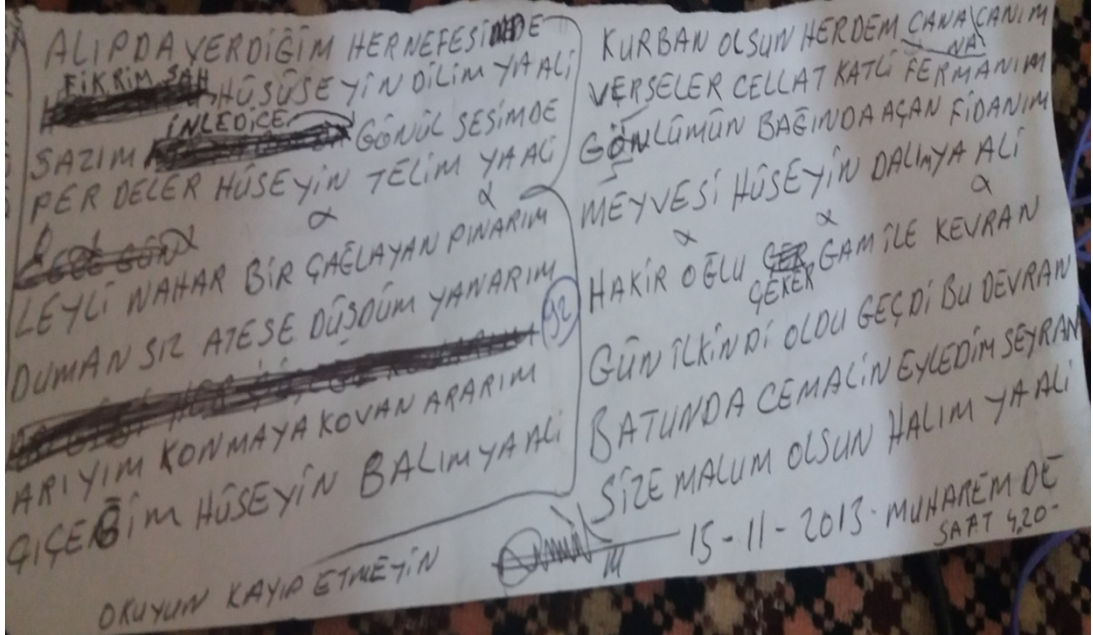 ALIPDA VERDİĞİM HERNEFESİMDE
FİKRİM ŞAH HÜSÜSEYİN DİLİM YA ALİ
SAZIM İNLEDİCE GÖNÜL SESİMDE
PERDELER HÜSEYİN TELİM YA ALİ
LEYLİ NAHAR BİR ÇAĞLAYAN PINARIM
DUMAN SIZ ATEŞE DÜŞDÜM YANARIM
ARIYIM KONMAYA KOVAN ARARIM
ÇİÇEĞİM HÜSEYİN BALIM YA ALİ
OKUYUN KAYIP ETMEYİN
92
KURBAN OLSUN HERDEM CANA CANIM
NA
VERSELER CELLAT KATLİ FERMANIM
GÖNLÜMÜN BAĞINDA AÇAN FİDANIM
MEYVESİ HÜSEYİN DALIM YA ALİ
HAKİR OĞLU ÇEKER GAM İLE KEVRAN
GÜN İLKİNDİ OLDU GEÇDİ BU DEVRAN
BATUNDA CEMALİN EYLEDİM SEYRAN
SİZE MALUM OLSUN HALIM YA ALİ
15-11-2013-MUHAREM DE
SAAT 4,20-